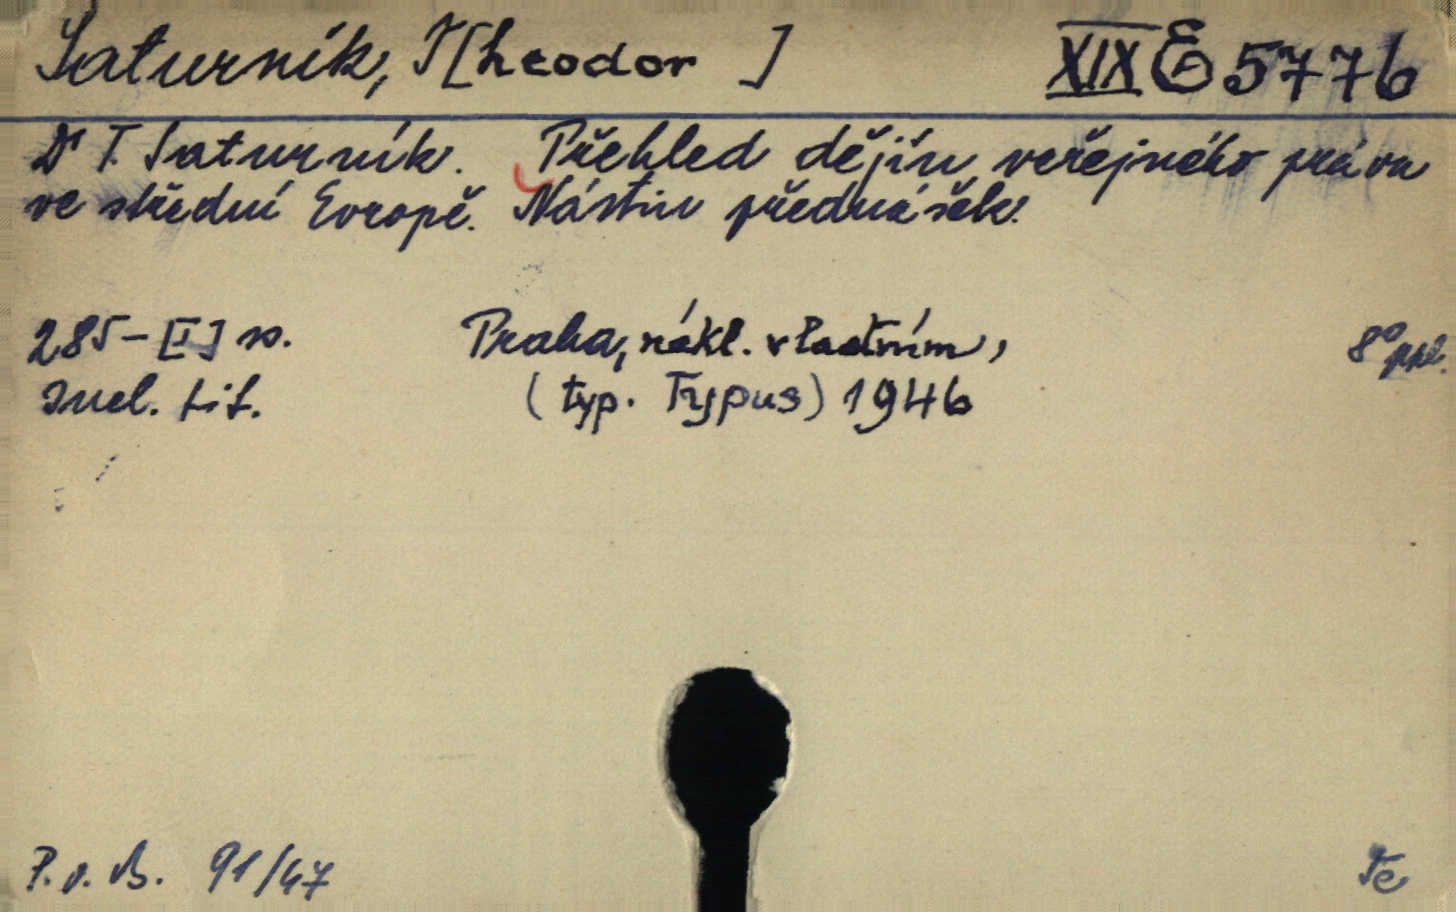 Saturník, T[heodor ] XIX E 5776
Dr T. Saturník. Přehled dějin veřejného práva
ve střední Evropě. Nástin přednášek.
285-[I] s. Praha, nákl. vlastním, 8° ppl.
Incl. tit. (typ. Typus) 1946
P. v. B. 91/47 Te